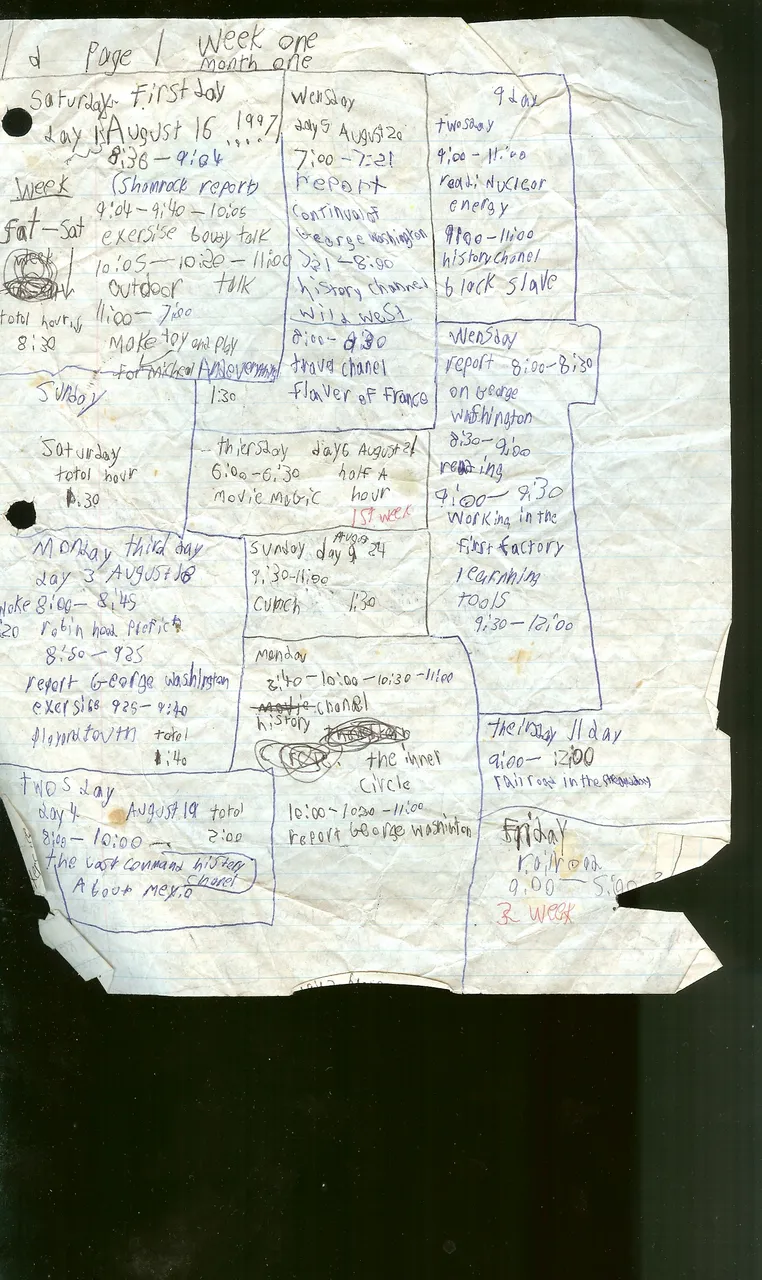 d Page 1 Week one
month one
Saturday First day
day 1 August 16 1997
8:36 - 9:04
Week
(Shamrock report)
9:04 - 9:40 - 10:05
Sat - Sat
exersise talk
week
10:05 - 10:20 - 11:00
outdoor talk
total hours
8:30
11:00 - 7:00
make toy and play
for micheal
Sunday
1:30
Saturday
total hour
1.30
Monday third day
day 3 August 18
8:00 - 8:45
robin hood
8:50 - 925
report George washington
exersise 925 - 9:40
total
1:40
twosday
day 4 August 19 total
8:00 - 10:00 2:00
the last command history
chanel
About mexio
Wensday
day 5 August 20
7:00 - 7:21
report
George washington
721 - 8:00
history channel
wild west
8:00 - 9:30
travel chanel
flaver of france
thirsday day 6 August 21
6:00 - 6:30 half A
movie magic hour
1st week
Sunday day 9 24
9:30 - 11:00
1:30
Monday
8:40 - 10:00 - 10:30 - 11:00
movie chanel
history
the inner
circle
10:00 - 1030 - 11:00
report George washinton
9 day
twosday
9:00 - 11:00
read: Nuclear
energy
9:00 - 11:00
history chanel
black slave
Wensday
report 8:00 - 8:30
on George
washington
8:30 - 9:00
reading
9:00 - 9:30
working in the
first factory
learnning
tools
9:30 - 12:00
thirsday 11 day
9:00 - 12:00
railroad in the
Friday
railroad
9:00 - 5:00
week